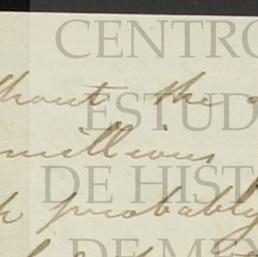 CENTRO
ESTUD
DE HIST
DE MEX
thout the
millions
probably